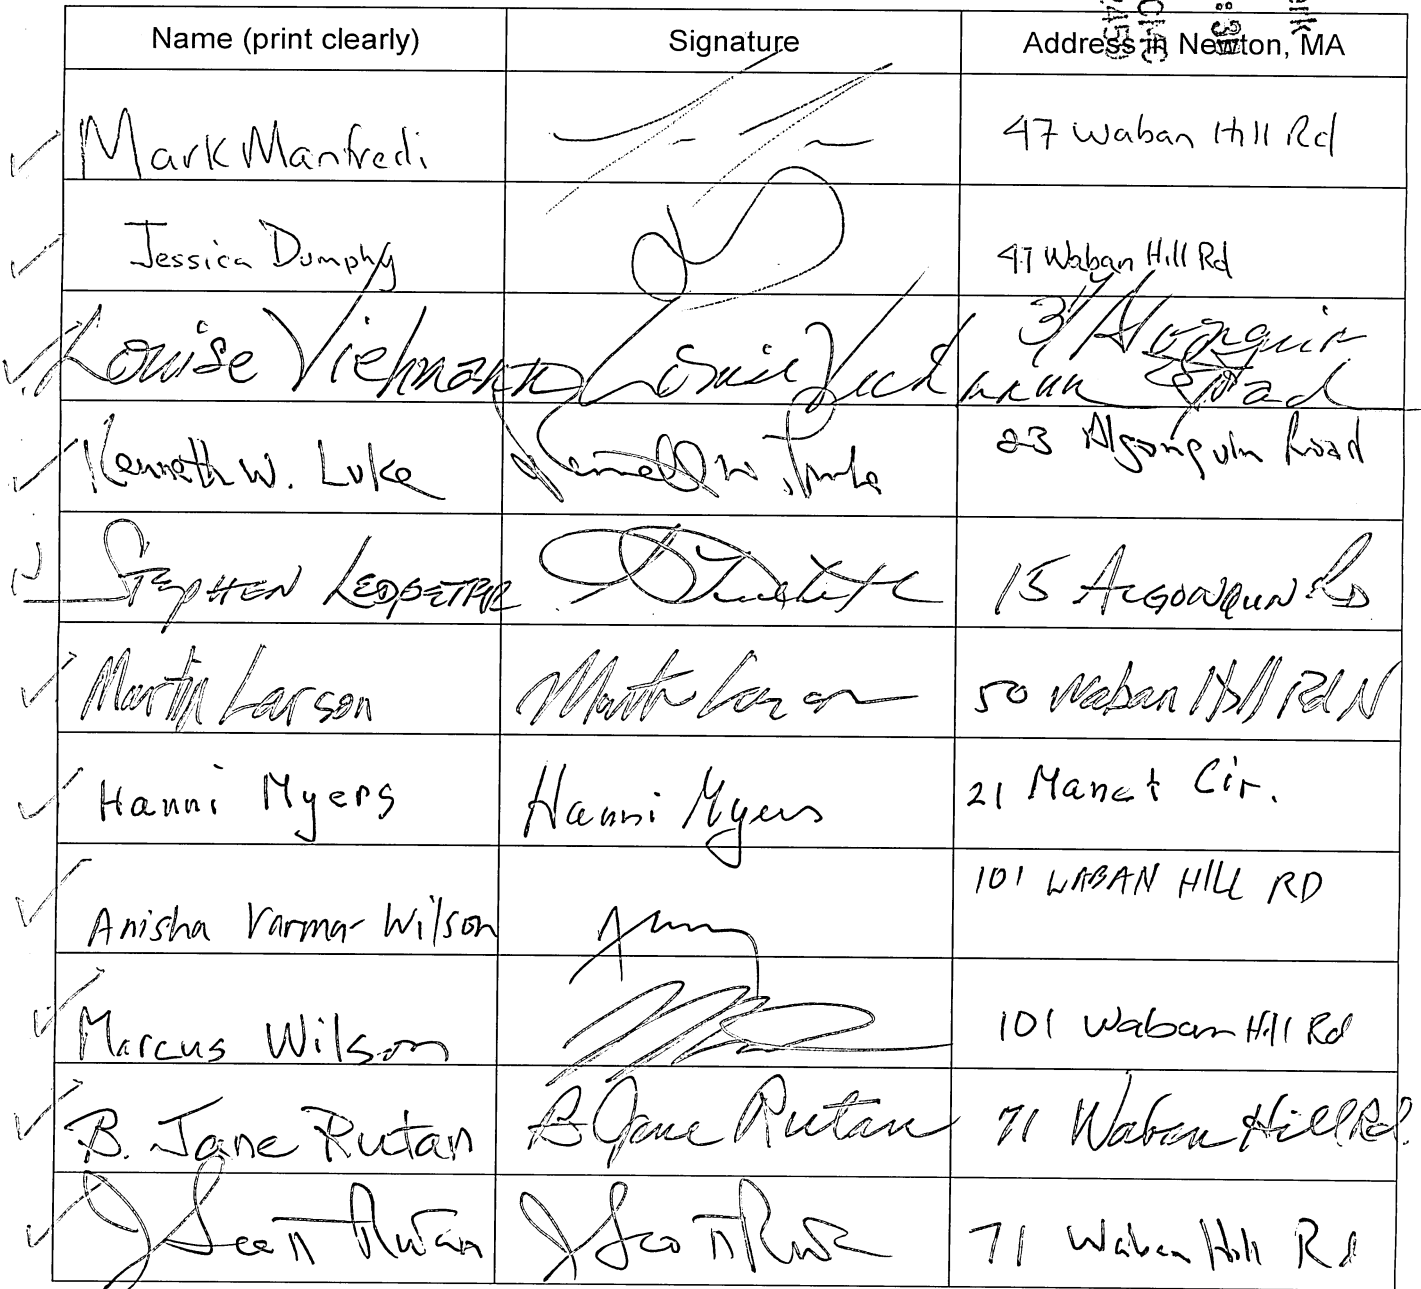 Name (print clearly) Signature Address in Newton, MA
Mark Manfredi 47 Waban Hill Rd
Jessica Dumphy 47 Waban Hill Rd
Louise Viehmann Louise Viehmann 31 Algonquin
Road
Kenneth W. Luke Kenneth W. Luke 23 Algonquin Road
STEPHEN LEDBETTER 15 ALGONQUIN RD
Martin Larson Martin Larson 50 Waban Hill Rd N
Hanni Myers Hanni Myers 21 Manet Cir.
Anisha Varma-Wilson 101 WABAN HILL RD
Marcus Wilson 101 Waban Hill Rd
B. Jane Rutan B Jane Rutan 71 Waban Hill Rd.
J Scott Rutan J Scott Rutan 71 Waban Hill Rd